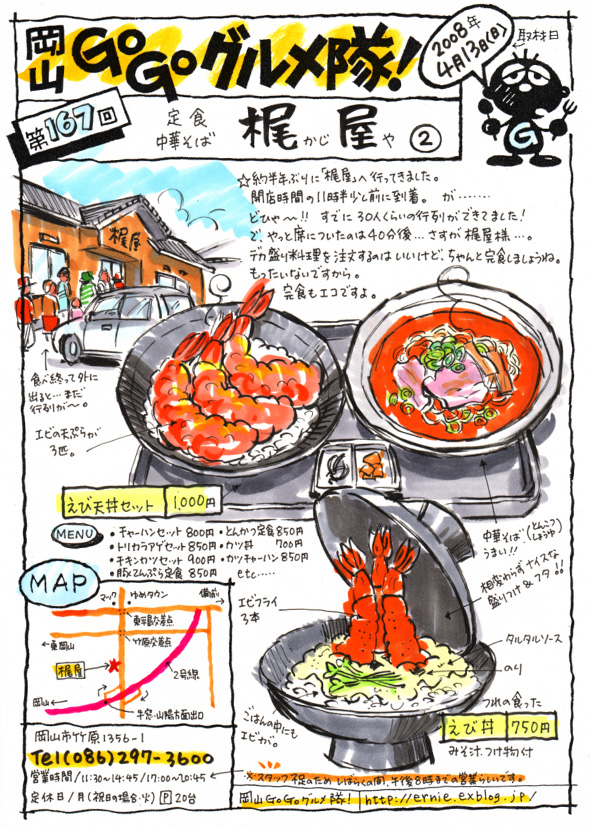 岡山 GoGoグルメ隊!
2008年
4月13日(日)
取材日
第167回
定食
中華そば
梶かじ屋や ②
G
☆約半年ぶりに「梶屋」へ行ってきました。
開店時間の11時半少し前に到着。 が‥‥‥
どひゃ〜!! すでに30人くらいの行列ができてました!
で、やっと席についたのは40分後…さすが梶屋様…。
デカ盛り料理を注文するのはいいけど、ちゃんと完食しましょうね。
もったいないですから。
完食もエコですよ。
梶屋
食べ終って外に
出ると…まだ
行列が〜。
エビの天ぷらが
3匹。
えび天丼セット 1.000円
中華そば(とんこつしょうゆ)
うまい!!
相変わらずナイスな
盛りつけ&フタ!!
MENU
・チャーハンセット 800円 ・とんかつ定食 850円
・トリカラアゲセット 850円 ・カツ丼 700円
・チキンカツセット 900円 ・カツチャーハン 850円
・豚てんぷら定食 850円 etc‥‥‥
MAP
マック
ゆめタウン
備前
東平島交差点
竹原交差点
東岡山
梶屋
2号線
岡山
牛窓・山陽方面出口
エビフライ
3本
タルタルソース
のり
ごはんの中にも
エビが。
つれの食った
えび丼 750円
みそ汁、つけ物付
岡山市竹原1356-1
Tel(086)297-3600
営業時間/11:30〜14:45/17:00〜20:45
※スタッフ不足のためしばらくの間、午後8時までの営業らしいです。
定休日/月(祝日の場合・火) P 20台
岡山GoGoグルメ隊! http://ernie.exblog.jp/